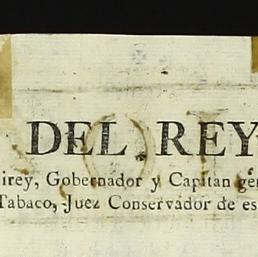 DEL REY
irey, Gobernador y Capitan gen
Tabaco, Juez Conservador de es